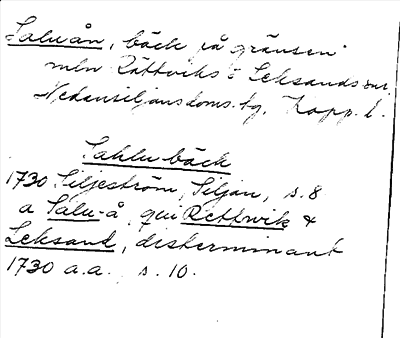 Saluån, bäck på gränsen
mln Rättviks o Leksands snr,
Nedansiljans doms. tg, Kopp. l.
Sahlu bäck
1730 Siljeström, Siljan, s. 8
a Salu-å, qui Rettwik &
Leksand, disterminant
1730 a.a. s. 10.